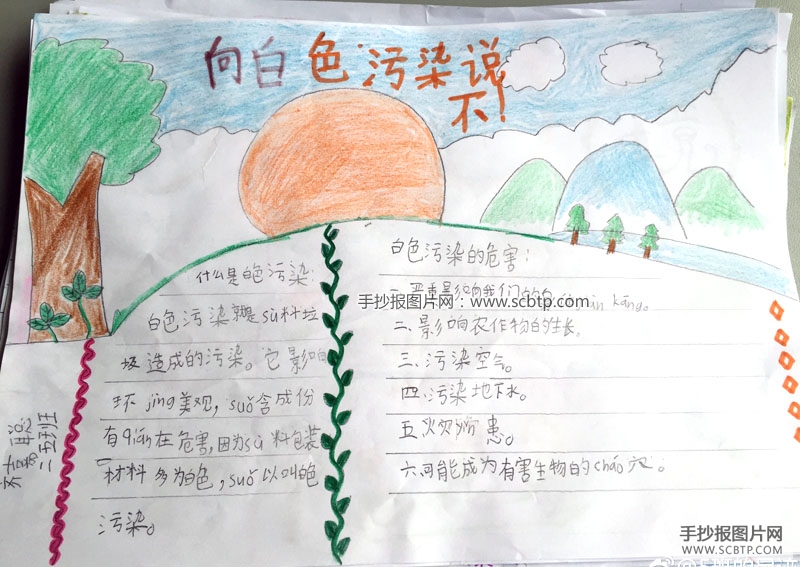 向白色污染说
不!
什么是白色污染
白色污染就是sù料垃
圾造成的污染。它影响
环jìng美观,suǒ含成份
有qián在危害,因为sù料包装
材料多为白色,suǒ以叫白色
污染。
白色污染的危害:
一.严重影响我们的
kāng。
二.影响农作物的生长。
三.污染空气。
四.污染地下水。
五.火灾 患。
六.可能成为有害生物的cháo穴。
二五班
手抄报图片网:www.scbtp.com
手抄报图片网
WWW.SCBTP.COM